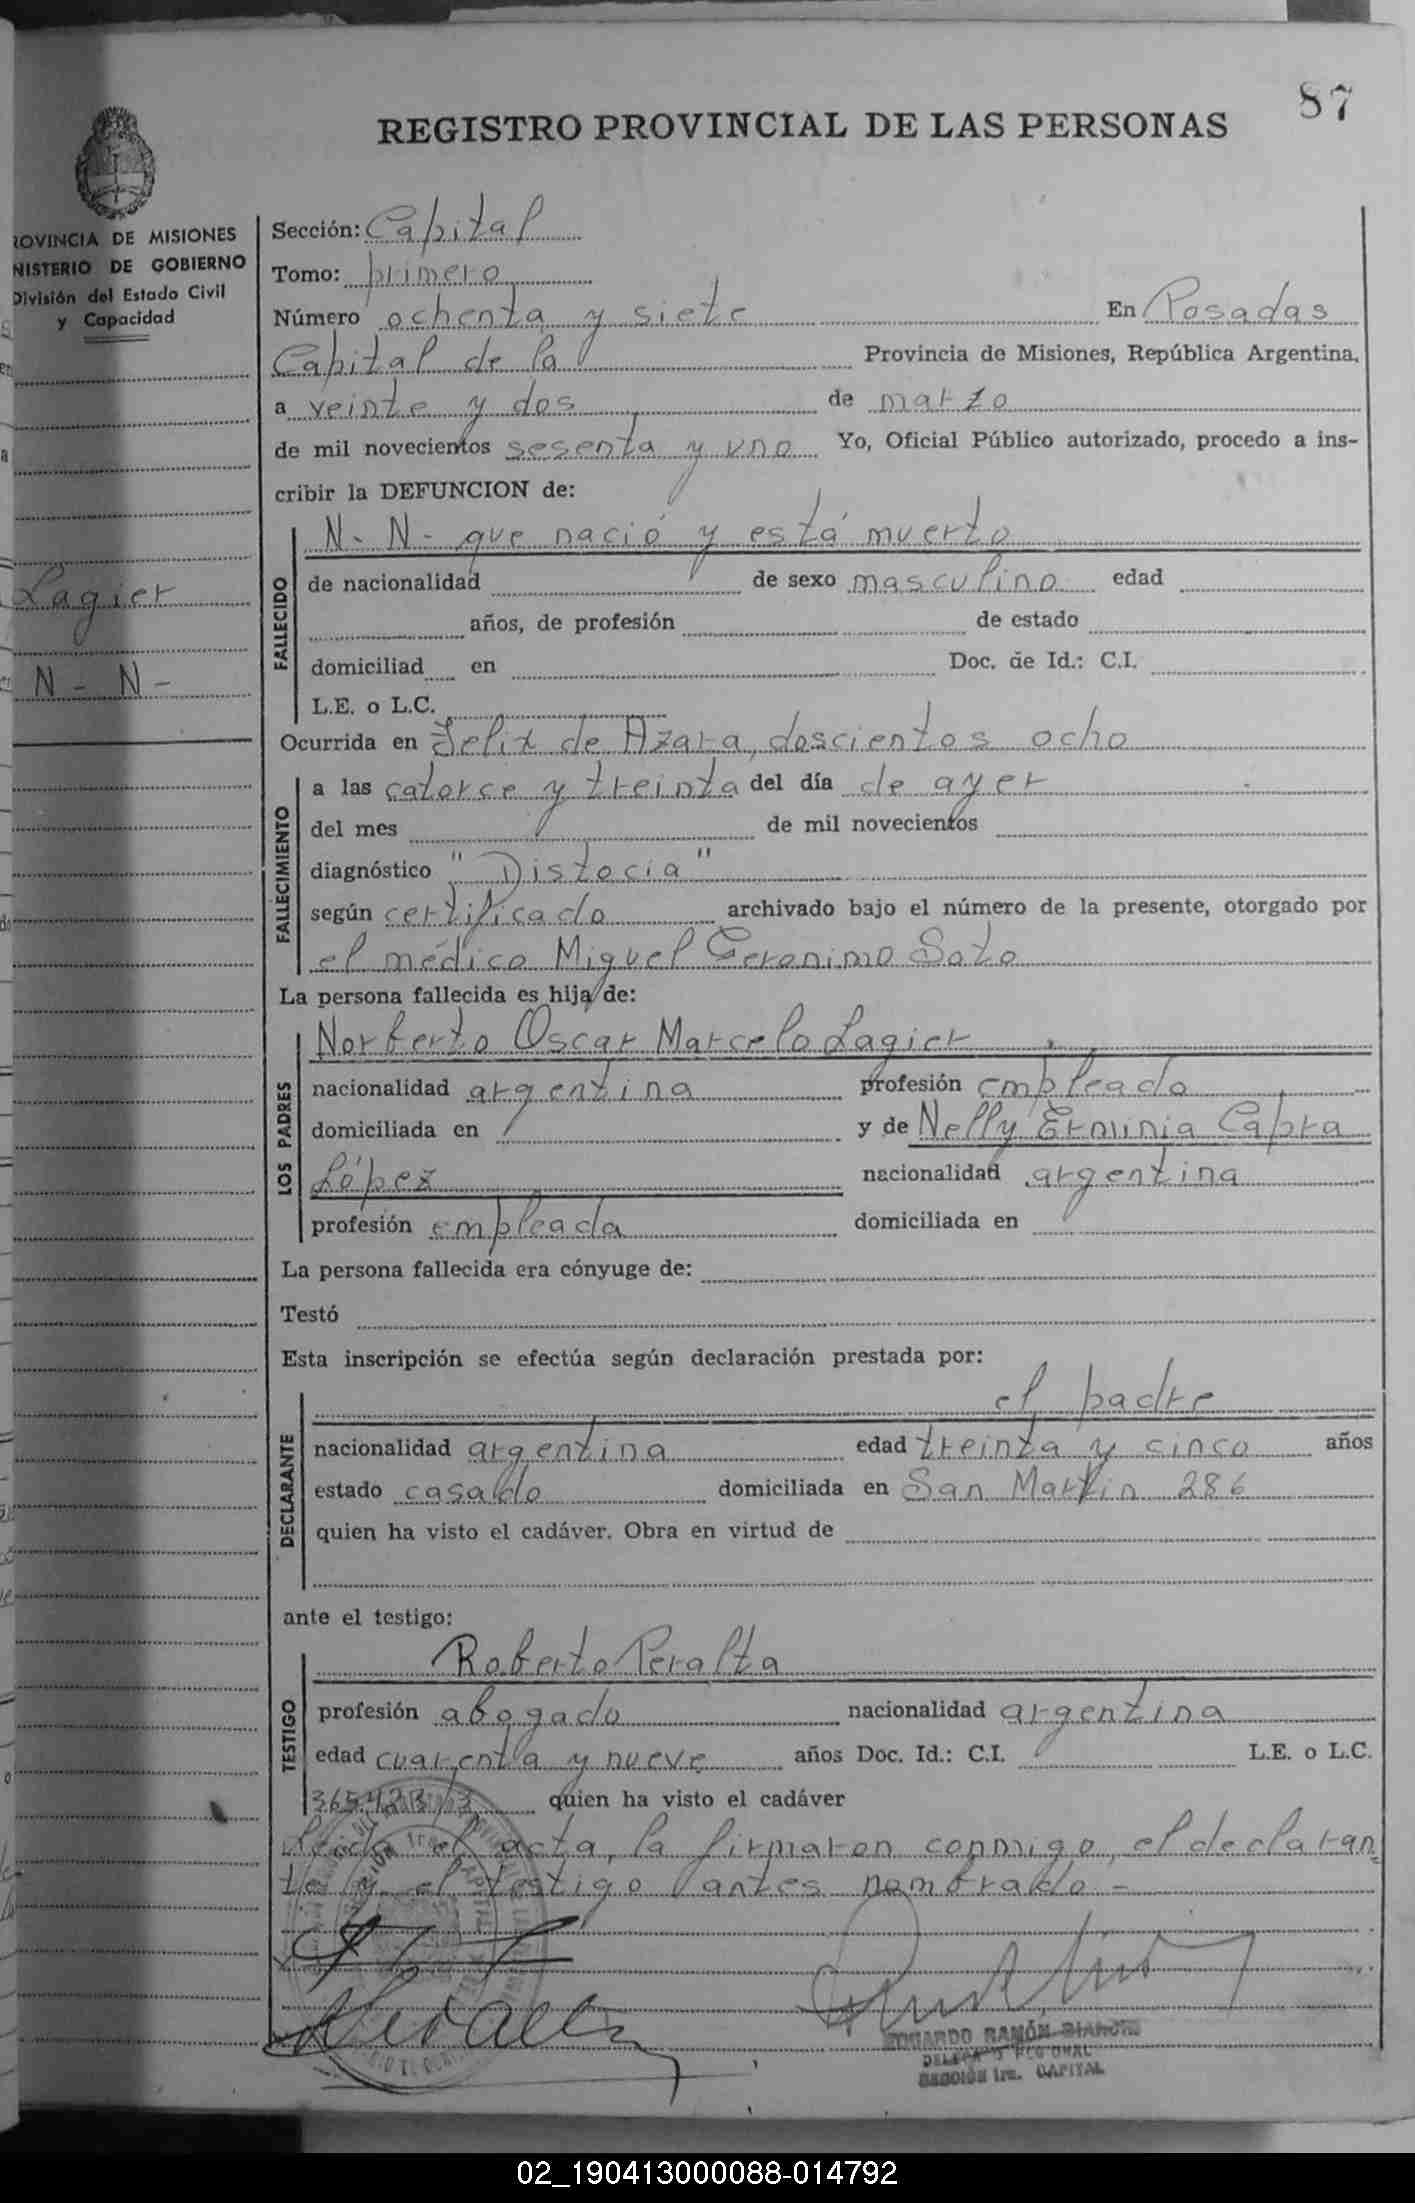 87
REGISTRO PROVINCIAL DE LAS PERSONAS
ROVINCIA DE MISIONES
NISTERIO DE GOBIERNO
División del Estado Civil
y Capacidad
Lagier
N - N -
Sección: Capital
Tomo: primero
Número ochenta y siete En Posadas
Capital de la Provincia de Misiones, República Argentina,
a veinte y dos de marzo
de mil novecientos sesenta y uno Yo, Oficial Público autorizado, procedo a ins-
cribir la DEFUNCION de:
FALLECIDO
N. N - que nació y está muerto
de nacionalidad de sexo masculino edad
años, de profesión de estado
domiciliad en Doc. de Id.: C.I.
L.E. o L.C.
Ocurrida en Felix de Azara, doscientos ocho
FALLECIMIENTO
a las catorce y treinta del día de ayer
del mes de mil novecientos
diagnóstico "Distocia"
según certificado archivado bajo el número de la presente, otorgado por
el médico Miguel Geronimo Soto
La persona fallecida es hija de:
LOS PADRES
Norberto Oscar Marcelo Lagier
nacionalidad argentina profesión empleado
domiciliada en y de Nelly Erminia Capra
López nacionalidad argentina
profesión empleada domiciliada en
La persona fallecida era cónyuge de:
Testó
Esta inscripción se efectúa según declaración prestada por:
DECLARANTE
el padre
nacionalidad argentina edad treinta y cinco años
estado casado domiciliada en San Martin 286
quien ha visto el cadáver. Obra en virtud de
ante el testigo:
TESTIGO
Roberto Peralta
profesión abogado nacionalidad argentina
edad cuarenta y nueve años Doc. Id.: C.I. L.E. o L.C.
quien ha visto el cadáver
Leida el acta, la firmaron conmigo, el declaran
te y el testigo antes nombrado -
RAMÓN BIANCHI
DELEGADO REGIONAL
SECCIÓN 1ra. CAPITAL
02_190413000088-014792